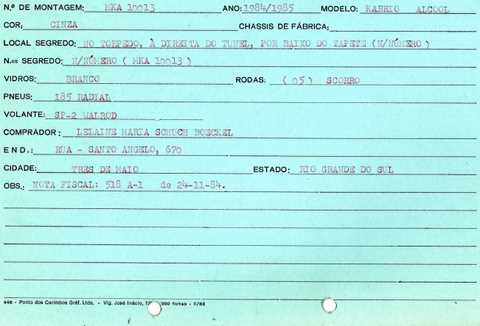 N.º DE MONTAGEM: MKA 10013 ANO: 1984/1985 MODELO: KABRIO ALCOOL
COR, CINZA CHASSIS DE FÁBRICA:
LOCAL SEGREDO: NO TORPEDO, À DIREITA DO TUNEL, POR BAIXO DO TAPETE (N/NÚMERO)
N.os SEGREDO: N/NÚMERO ( MKA 10013 )
VIDROS: BRANCO RODAS: ( 05 ) SCORRO
PNEUS: 185 RADIAL
VOLANTE: SP-2 WALROD
COMPRADOR: LELAINE MARIA SCHUCH BOECKEL
E N D.: RUA - SANTO ANGELO, 670
CIDADE: TRES DE MAIO ESTADO: RIO GRANDE DO SUL
OBS.: NOTA FISCAL: 518 A-1 de 24-11-84.
Ponto dos Carimbos Gráf. Ltda. - Vig. José Inácio, fichas